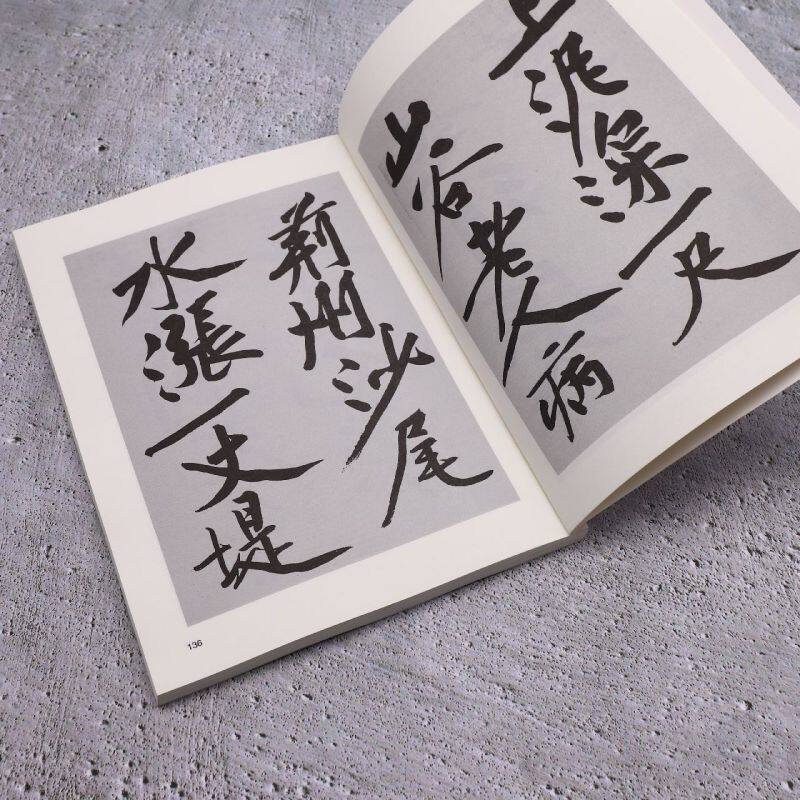 荆州沙尾
水漲一丈堤
上泥深一尺
山谷老人病
136